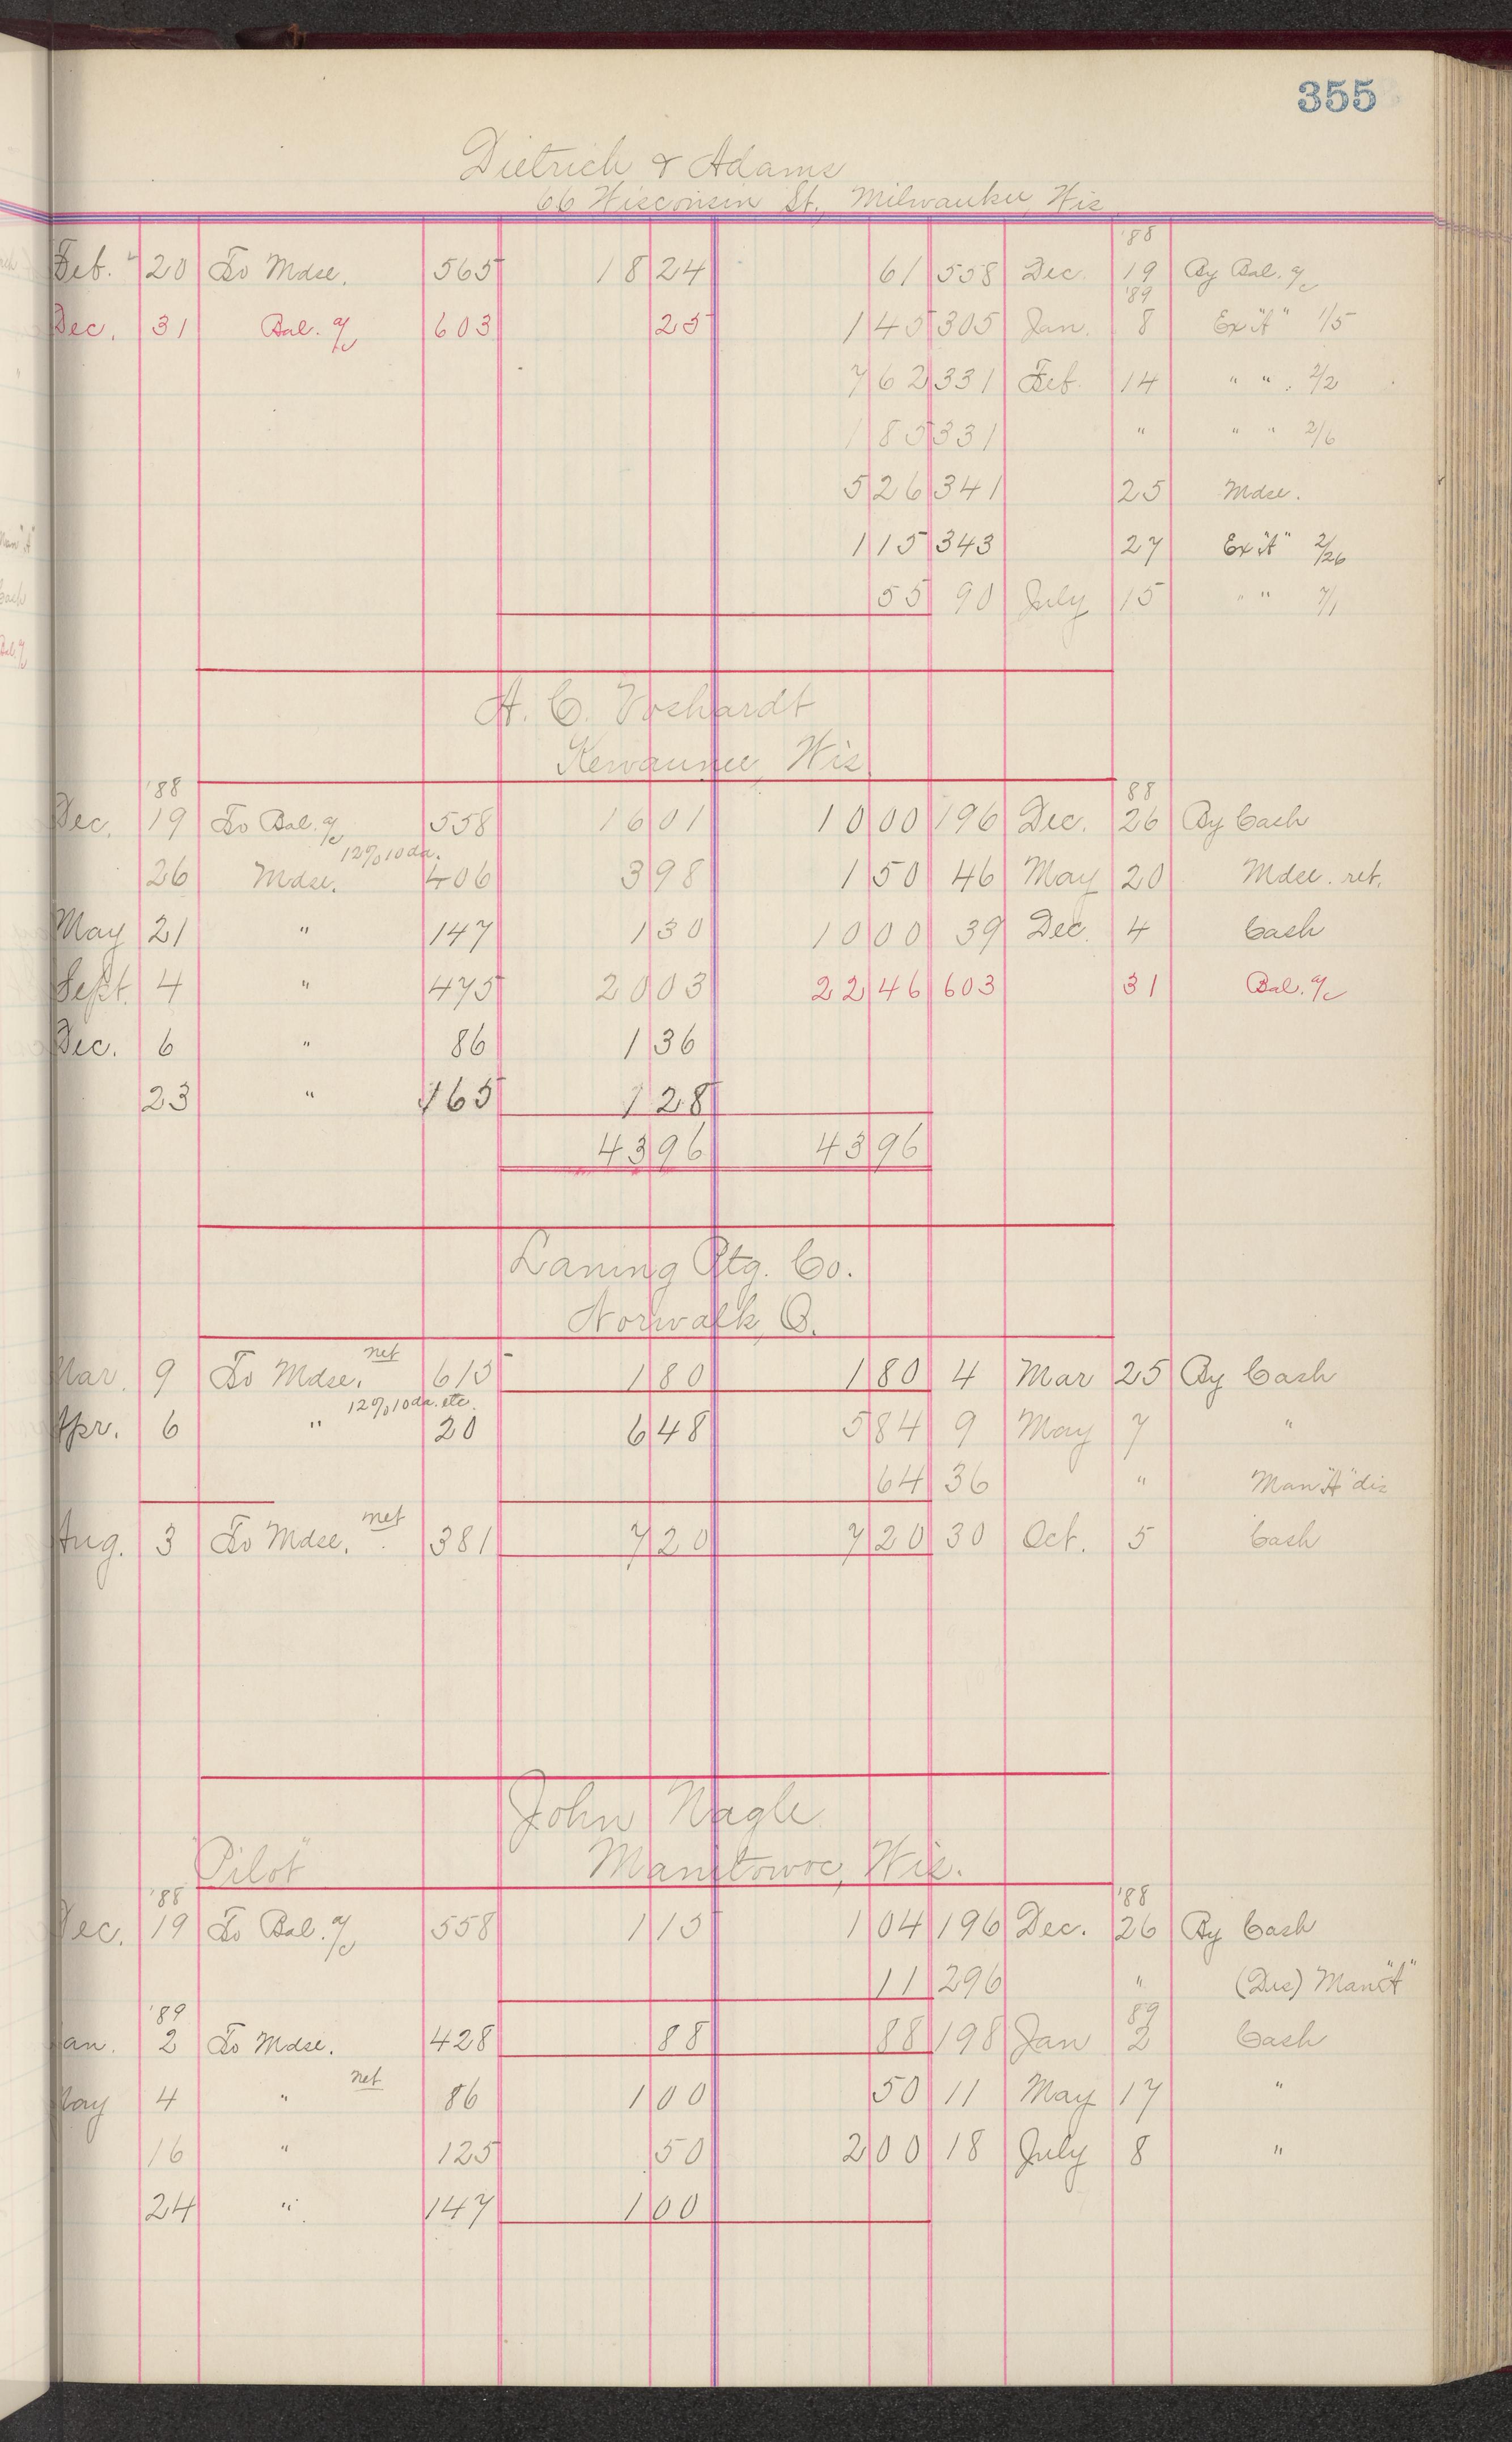 355
Dietrich & Adams
66 Wisconsin St., Milwaukee, Wis
'88
Feb. 20 To Mdse. 565 18 24 61 558 Dec. 19 By Bal. a/c
'89
Dec. 31 Bal. a/c 603 25 1 45 305 Jan. 8 Ex "A" 1/5
7 62 331 Feb. 14 " " . 2/2
1 85 331 " " " 2/6
5 26 341 25 Mdse.
1 15 343 27 Ex "A" 2/26
55 90 July 15 " " 7/1
A. C. Voshardt
Kewaunee, Wis
'88 88
Dec. 19 To Bal. a/c 558 16 01 10 00 196 Dec. 26 By Cash
12% 10 da.
26 Mdse. 406 3 98 1 50 46 May 20 Mdse. ret.
May 21 " 147 1 30 10 00 39 Dec. 4 Cash
Sept. 4 " 475 20 03 22 46 603 31 Bal. a/c
Dec. 6 " 86 1 36
23 " 165 1 28
43 96 43 96
Laning Ptg. Co.
Norwalk, O.
net
Mar. 9 To Mdse. 615 1 80 1 80 4 Mar 25 By Cash
12% 10 da. etc.
Apr. 6 " 20 6 48 5 84 9 May 7 "
64 36 " Man "A" dis
net
Aug. 3 To Mdse. 381 7 20 7 20 30 Oct. 5 Cash
John Nagle
"Pilot" Manitowoc, Wis.
'88 '88
Dec. 19 To Bal. a/c 558 1 15 1 04 196 Dec. 26 By Cash
11 296 " (Dis) Man "A"
'89 89
Jan. 2 To Mdse. 428 88 88 198 Jan 2 Cash
net
May 4 " 86 1 00 50 11 May 17 "
16 " 125 50 2 00 18 July 8 "
24 " 147 1 00